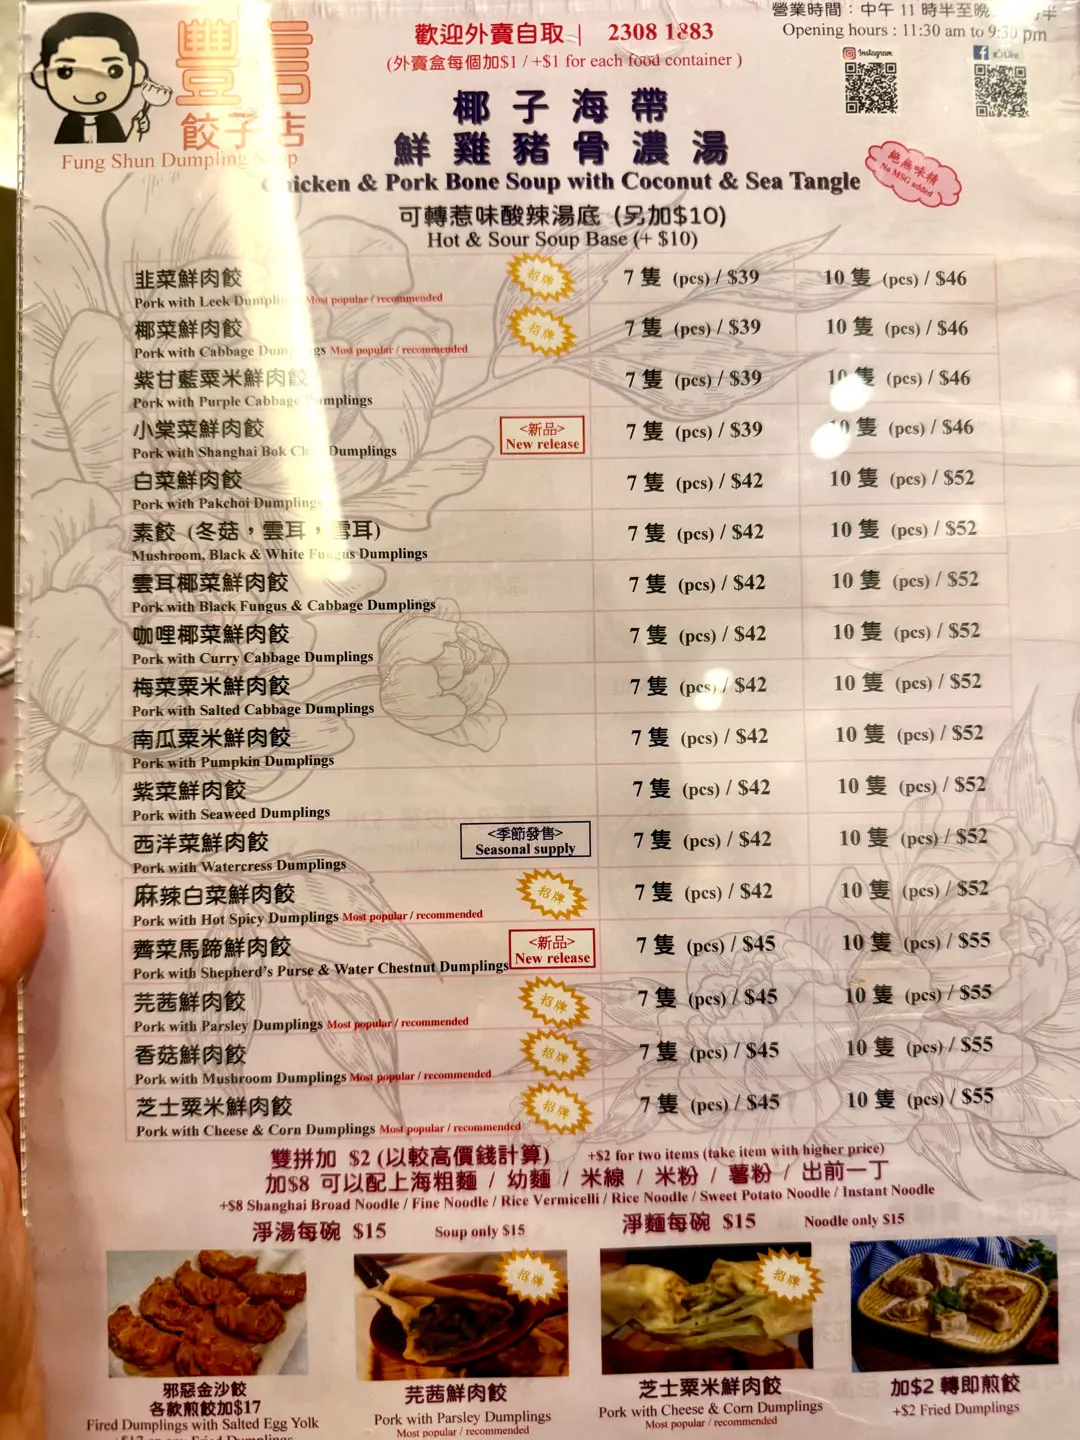 豐信
餃子店
Fung Shun Dumpling Shop
歡迎外賣自取 | 2308 1883
(外賣盒每個加$1 / +$1 for each food container )
營業時間：中午 11 時半至晚 時半
Opening hours : 11:30 am to 9:30 pm
Instagram
Like
椰子海帶
鮮雞豬骨濃湯
Chicken & Pork Bone Soup with Coconut & Sea Tangle
絕無味精
No MSG added
可轉惹味酸辣湯底 (另加$10)
Hot & Sour Soup Base (+ $10)
韭菜鮮肉餃 招牌 7 隻 (pcs) / $39 10 隻 (pcs) / $46
Pork with Leek Dumplin Most popular / recommended
椰菜鮮肉餃 招牌 7 隻 (pcs) / $39 10 隻 (pcs) / $46
Pork with Cabbage Dumplings Most popular / recommended
紫甘藍粟米鮮肉餃 7 隻 (pcs) / $39 10 隻 (pcs) / $46
Pork with Purple Cabbage Dumplings
小棠菜鮮肉餃 <新品> 7 隻 (pcs) / $39 10 隻 (pcs) / $46
Pork with Shanghai Bok Choi Dumplings New release
白菜鮮肉餃 7 隻 (pcs) / $42 10 隻 (pcs) / $52
Pork with Pakchoi Dumplings
素餃 (冬菇，雲耳，雪耳) 7 隻 (pcs) / $42 10 隻 (pcs) / $52
Mushroom, Black & White Fungus Dumplings
雲耳椰菜鮮肉餃 7 隻 (pcs) / $42 10 隻 (pcs) / $52
Pork with Black Fungus & Cabbage Dumplings
咖哩椰菜鮮肉餃 7 隻 (pcs) / $42 10 隻 (pcs) / $52
Pork with Curry Cabbage Dumplings
梅菜粟米鮮肉餃 7 隻 (pcs) / $42 10 隻 (pcs) / $52
Pork with Salted Cabbage Dumplings
南瓜粟米鮮肉餃 7 隻 (pcs) / $42 10 隻 (pcs) / $52
Pork with Pumpkin Dumplings
紫菜鮮肉餃 7 隻 (pcs) / $42 10 隻 (pcs) / $52
Pork with Seaweed Dumplings
西洋菜鮮肉餃 <季節發售> 7 隻 (pcs) / $42 10 隻 (pcs) / $52
Pork with Watercress Dumplings Seasonal supply
麻辣白菜鮮肉餃 招牌 7 隻 (pcs) / $42 10 隻 (pcs) / $52
Pork with Hot Spicy Dumplings Most popular / recommended
薺菜馬蹄鮮肉餃 <新品> 7 隻 (pcs) / $45 10 隻 (pcs) / $55
Pork with Shepherd's Purse & Water Chestnut Dumplings New release
芫茜鮮肉餃 招牌 7 隻 (pcs) / $45 10 隻 (pcs) / $55
Pork with Parsley Dumplings Most popular / recommended
香菇鮮肉餃 招牌 7 隻 (pcs) / $45 10 隻 (pcs) / $55
Pork with Mushroom Dumplings Most popular / recommended
芝士粟米鮮肉餃 招牌 7 隻 (pcs) / $45 10 隻 (pcs) / $55
Pork with Cheese & Corn Dumplings Most popular / recommended
雙拼加 $2 (以較高價錢計算) +$2 for two items (take item with higher price)
加$8 可以配上海粗麵 / 幼麵 / 米線 / 米粉 / 薯粉 / 出前一丁
+$8 Shanghai Broad Noodle / Fine Noodle / Rice Vermicelli / Rice Noodle / Sweet Potato Noodle / Instant Noodle
淨湯每碗 $15 Soup only $15 淨麵每碗 $15 Noodle only $15
招牌
招牌
邪惡金沙餃
各款煎餃加$17
Fired Dumplings with Salted Egg Yolk
+$17 on any Fried Dumplings
芫茜鮮肉餃
Pork with Parsley Dumplings
Most popular / recommended
芝士粟米鮮肉餃
Pork with Cheese & Corn Dumplings
Most popular / recommended
加$2 轉即煎餃
+$2 Fried Dumplings